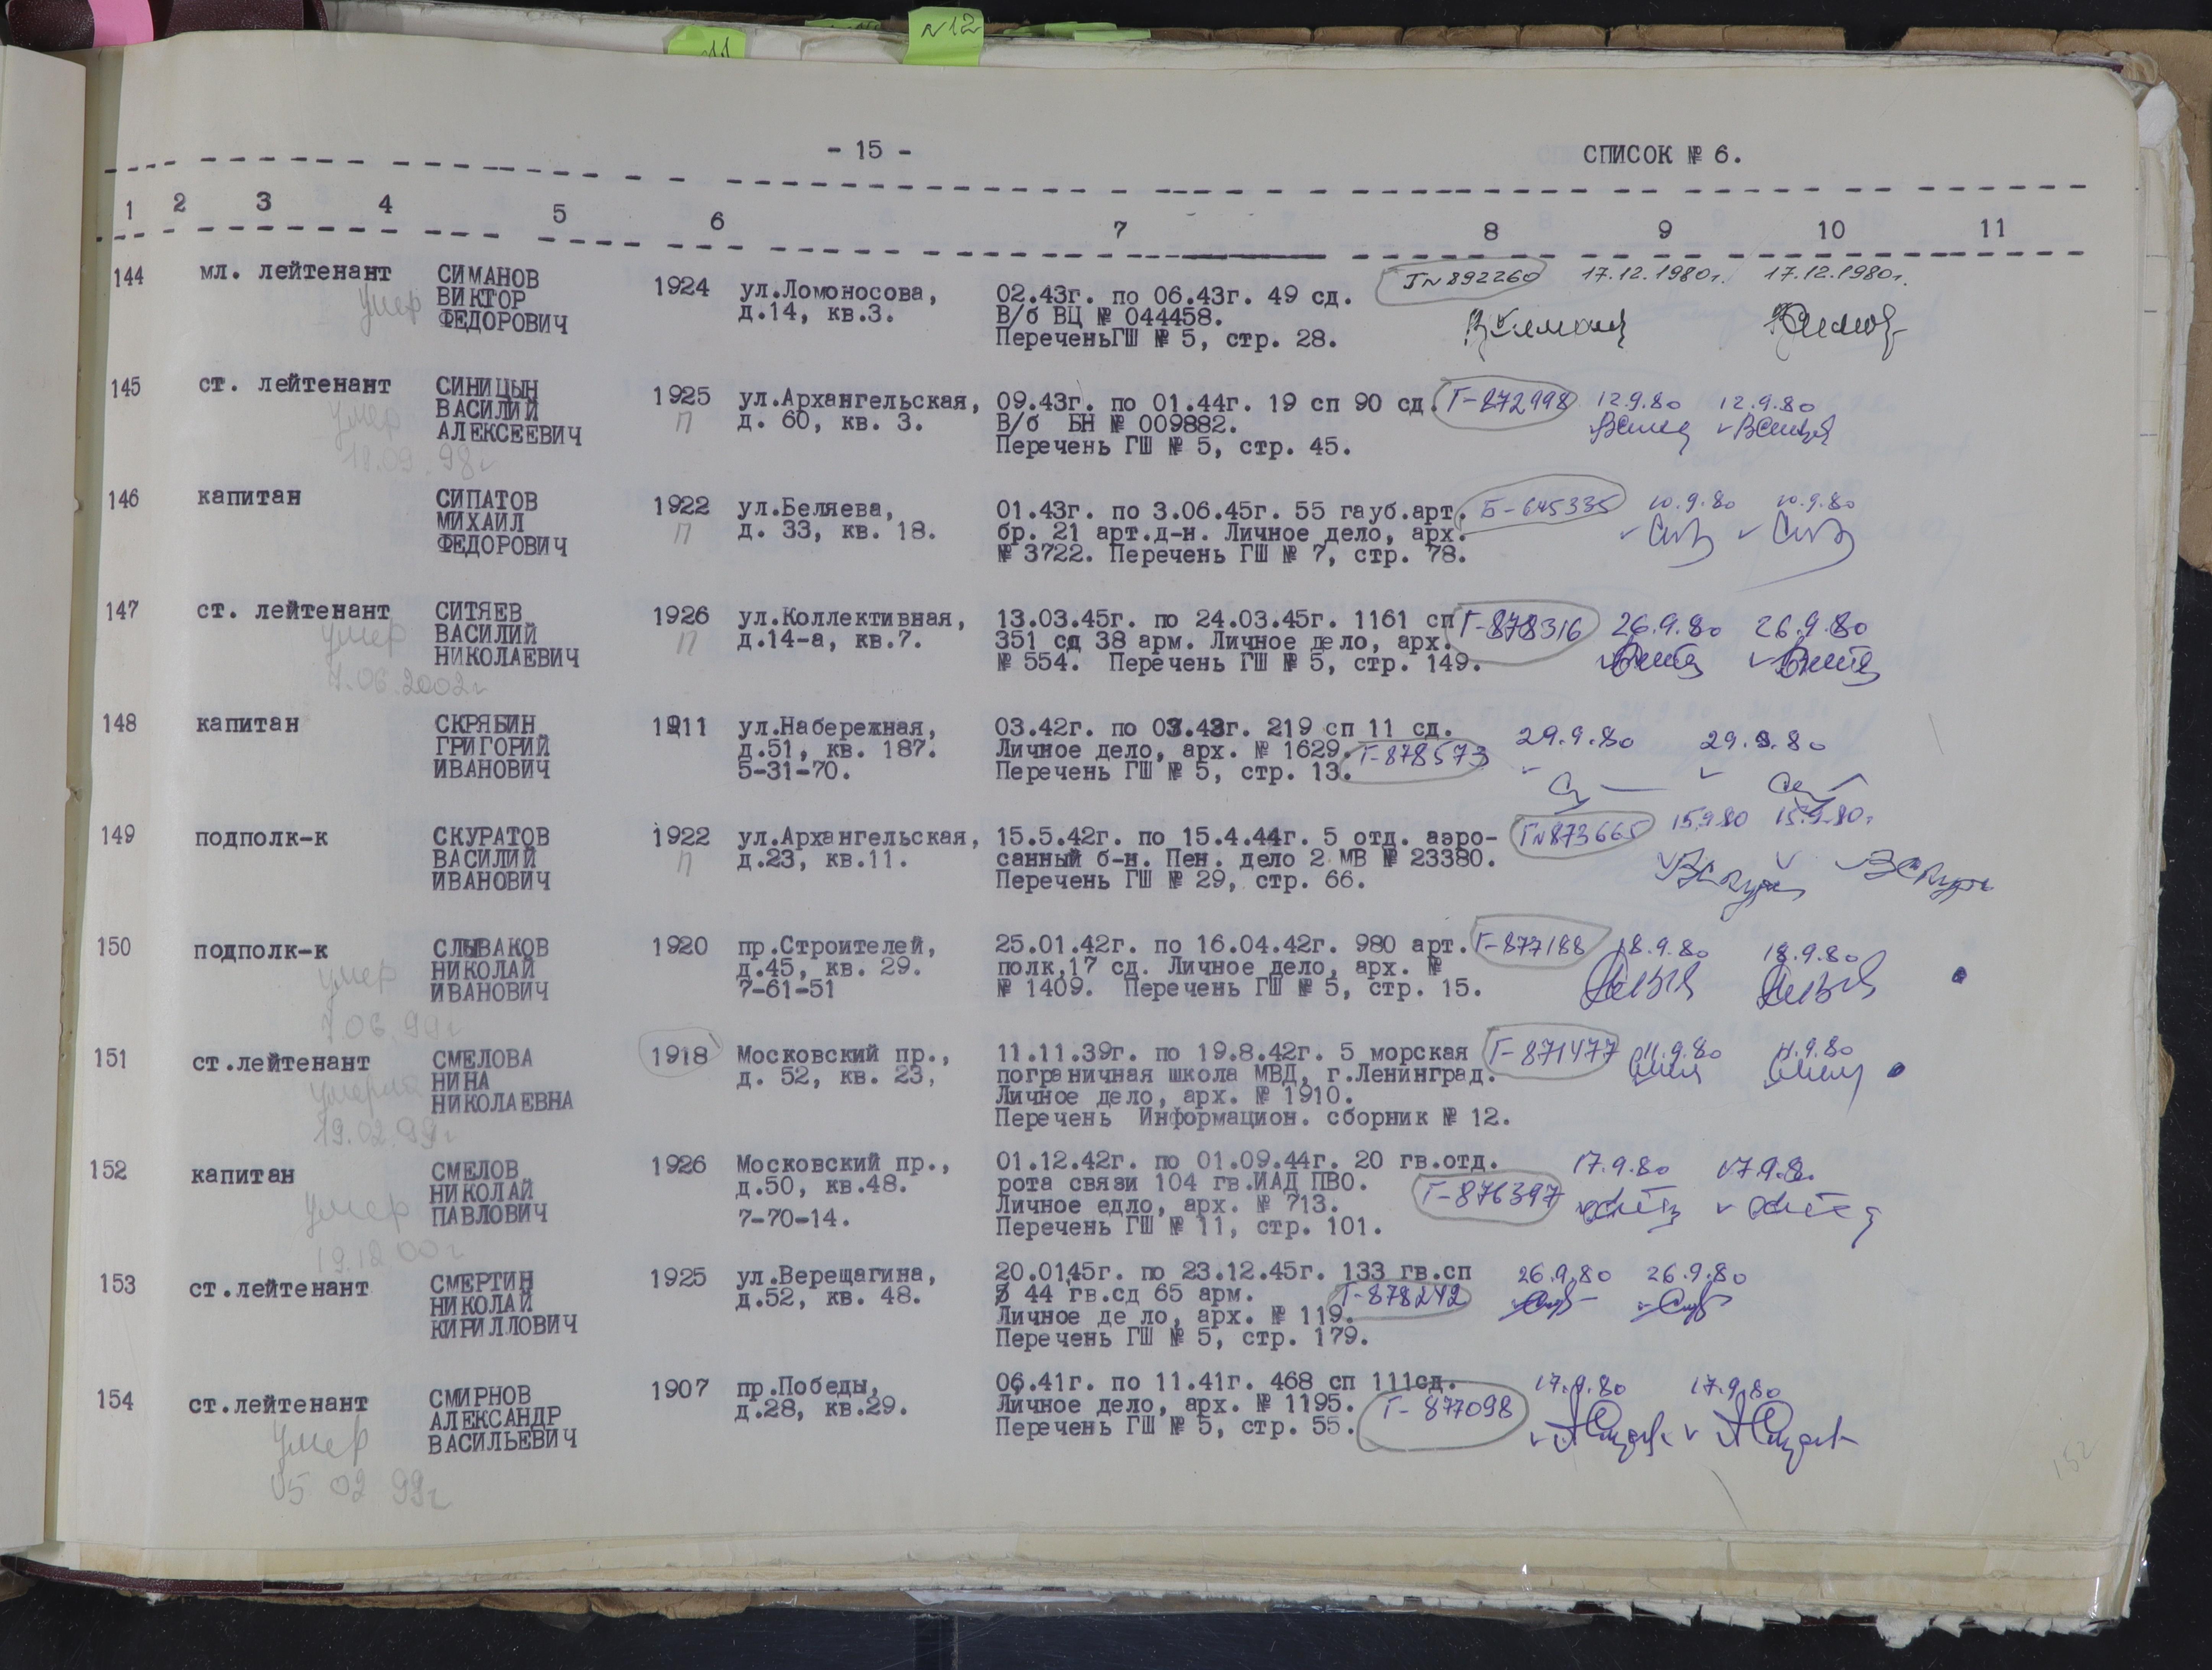 N12
- 15 -
СПИСОК № 6.
1 2 3 4 5 6 7 8 9 10 11
144 мл. лейтенант СИМАНОВ 1924 ул.Ломоносова, 02.43г. по 06.43г. 49 сд. Г№892260 17.12.1980г. 17.12.1980г.
умер ВИКТОР д.14, кв.3. В/б ВЦ № 044458.
ФЕДОРОВИЧ ПереченьГШ № 5, стр. 28.
145 ст. лейтенант СИНИЦЫН 1925 ул.Архангельская, 09.43г. по 01.44г. 19 сп 90 сд. Г-872998 12.9.80 12.9.80
умер ВАСИЛИЙ П д. 60, кв. 3. В/б БН № 009882.
АЛЕКСЕЕВИЧ Перечень ГШ № 5, стр. 45.
18.09.98г
146 капитан СИПАТОВ 1922 ул.Беляева, 01.43г. по 3.06.45г. 55 гауб.арт. Б-645335 10.9.80 10.9.80
МИХАИЛ П д. 33, кв. 18. бр. 21 арт.д-н. Личное дело, арх.
ФЕДОРОВИЧ № 3722. Перечень ГШ № 7, стр. 78.
147 ст. лейтенант СИТЯЕВ 1926 ул.Коллективная, 13.03.45г. по 24.03.45г. 1161 сп Г-878316 26.9.80 26.9.80
умер ВАСИЛИЙ П д.14-а, кв.7. 351 сд 38 арм. Личное дело, арх.
НИКОЛАЕВИЧ № 554. Перечень ГШ № 5, стр. 149.
7.06.2002г
148 капитан СКРЯБИН 1911 ул.Набережная, 03.42г. по 03.43г. 219 сп 11 сд. 29.9.80 29.9.80
ГРИГОРИЙ д.51, кв. 187. Личное дело, арх. № 1629. Г-878573
ИВАНОВИЧ 5-31-70. Перечень ГШ № 5, стр. 13.
149 подполк-к СКУРАТОВ 1922 ул.Архангельская, 15.5.42г. по 15.4.44г. 5 отд. аэро- Г№873665 15.9.80 15.9.80.
ВАСИЛИЙ П д.23, кв.11. санный б-н. Пен. дело 2 МВ № 23380.
ИВАНОВИЧ Перечень ГШ № 29, стр. 66.
150 подполк-к СЛЫВАКОВ 1920 пр.Строителей, 25.01.42г. по 16.04.42г. 980 арт. Г-877188 18.9.80 18.9.80
умер НИКОЛАЙ д.45, кв. 29. полк,17 сд. Личное дело, арх. №
ИВАНОВИЧ 7-61-51 № 1409. Перечень ГШ № 5, стр. 15.
7.06.99г
151 ст.лейтенант СМЕЛОВА 1918 Московский пр., 11.11.39г. по 19.8.42г. 5 морская Г-871477 11.9.80 11.9.80
умерла НИНА д. 52, кв. 23, пограничная школа МВД, г.Ленинград.
НИКОЛАЕВНА Личное дело, арх. № 1910.
19.02.99г Перечень Информацион. сборник № 12.
152 капитан СМЕЛОВ 1926 Московский пр., 01.12.42г. по 01.09.44г. 20 гв.отд. 17.9.80 17.9.8.
умер НИКОЛАЙ д.50, кв.48. рота связи 104 гв.ИАД ПВО. Г-876397
ПАВЛОВИЧ 7-70-14. Личное едло, арх. № 713.
19.12.00г Перечень ГШ № 11, стр. 101.
153 ст.лейтенант СМЕРТИН 1925 ул.Верещагина, 20.0145г. по 23.12.45г. 133 гв.сп 26.9.80 26.9.80
НИКОЛАЙ д.52, кв. 48. 44 гв.сд 65 арм. Г-878242
КИРИЛЛОВИЧ Личное де ло, арх. № 119.
Перечень ГШ № 5, стр. 179.
154 ст.лейтенант СМИРНОВ 1907 пр.Победы, 06.41г. по 11.41г. 468 сп 111сд. 17.9.80 17.9.80
умер АЛЕКСАНДР д.28, кв.29. Личное дело, арх. № 1195. Г-877098
ВАСИЛЬЕВИЧ Перечень ГШ № 5, стр. 55.
05 02 99г
152